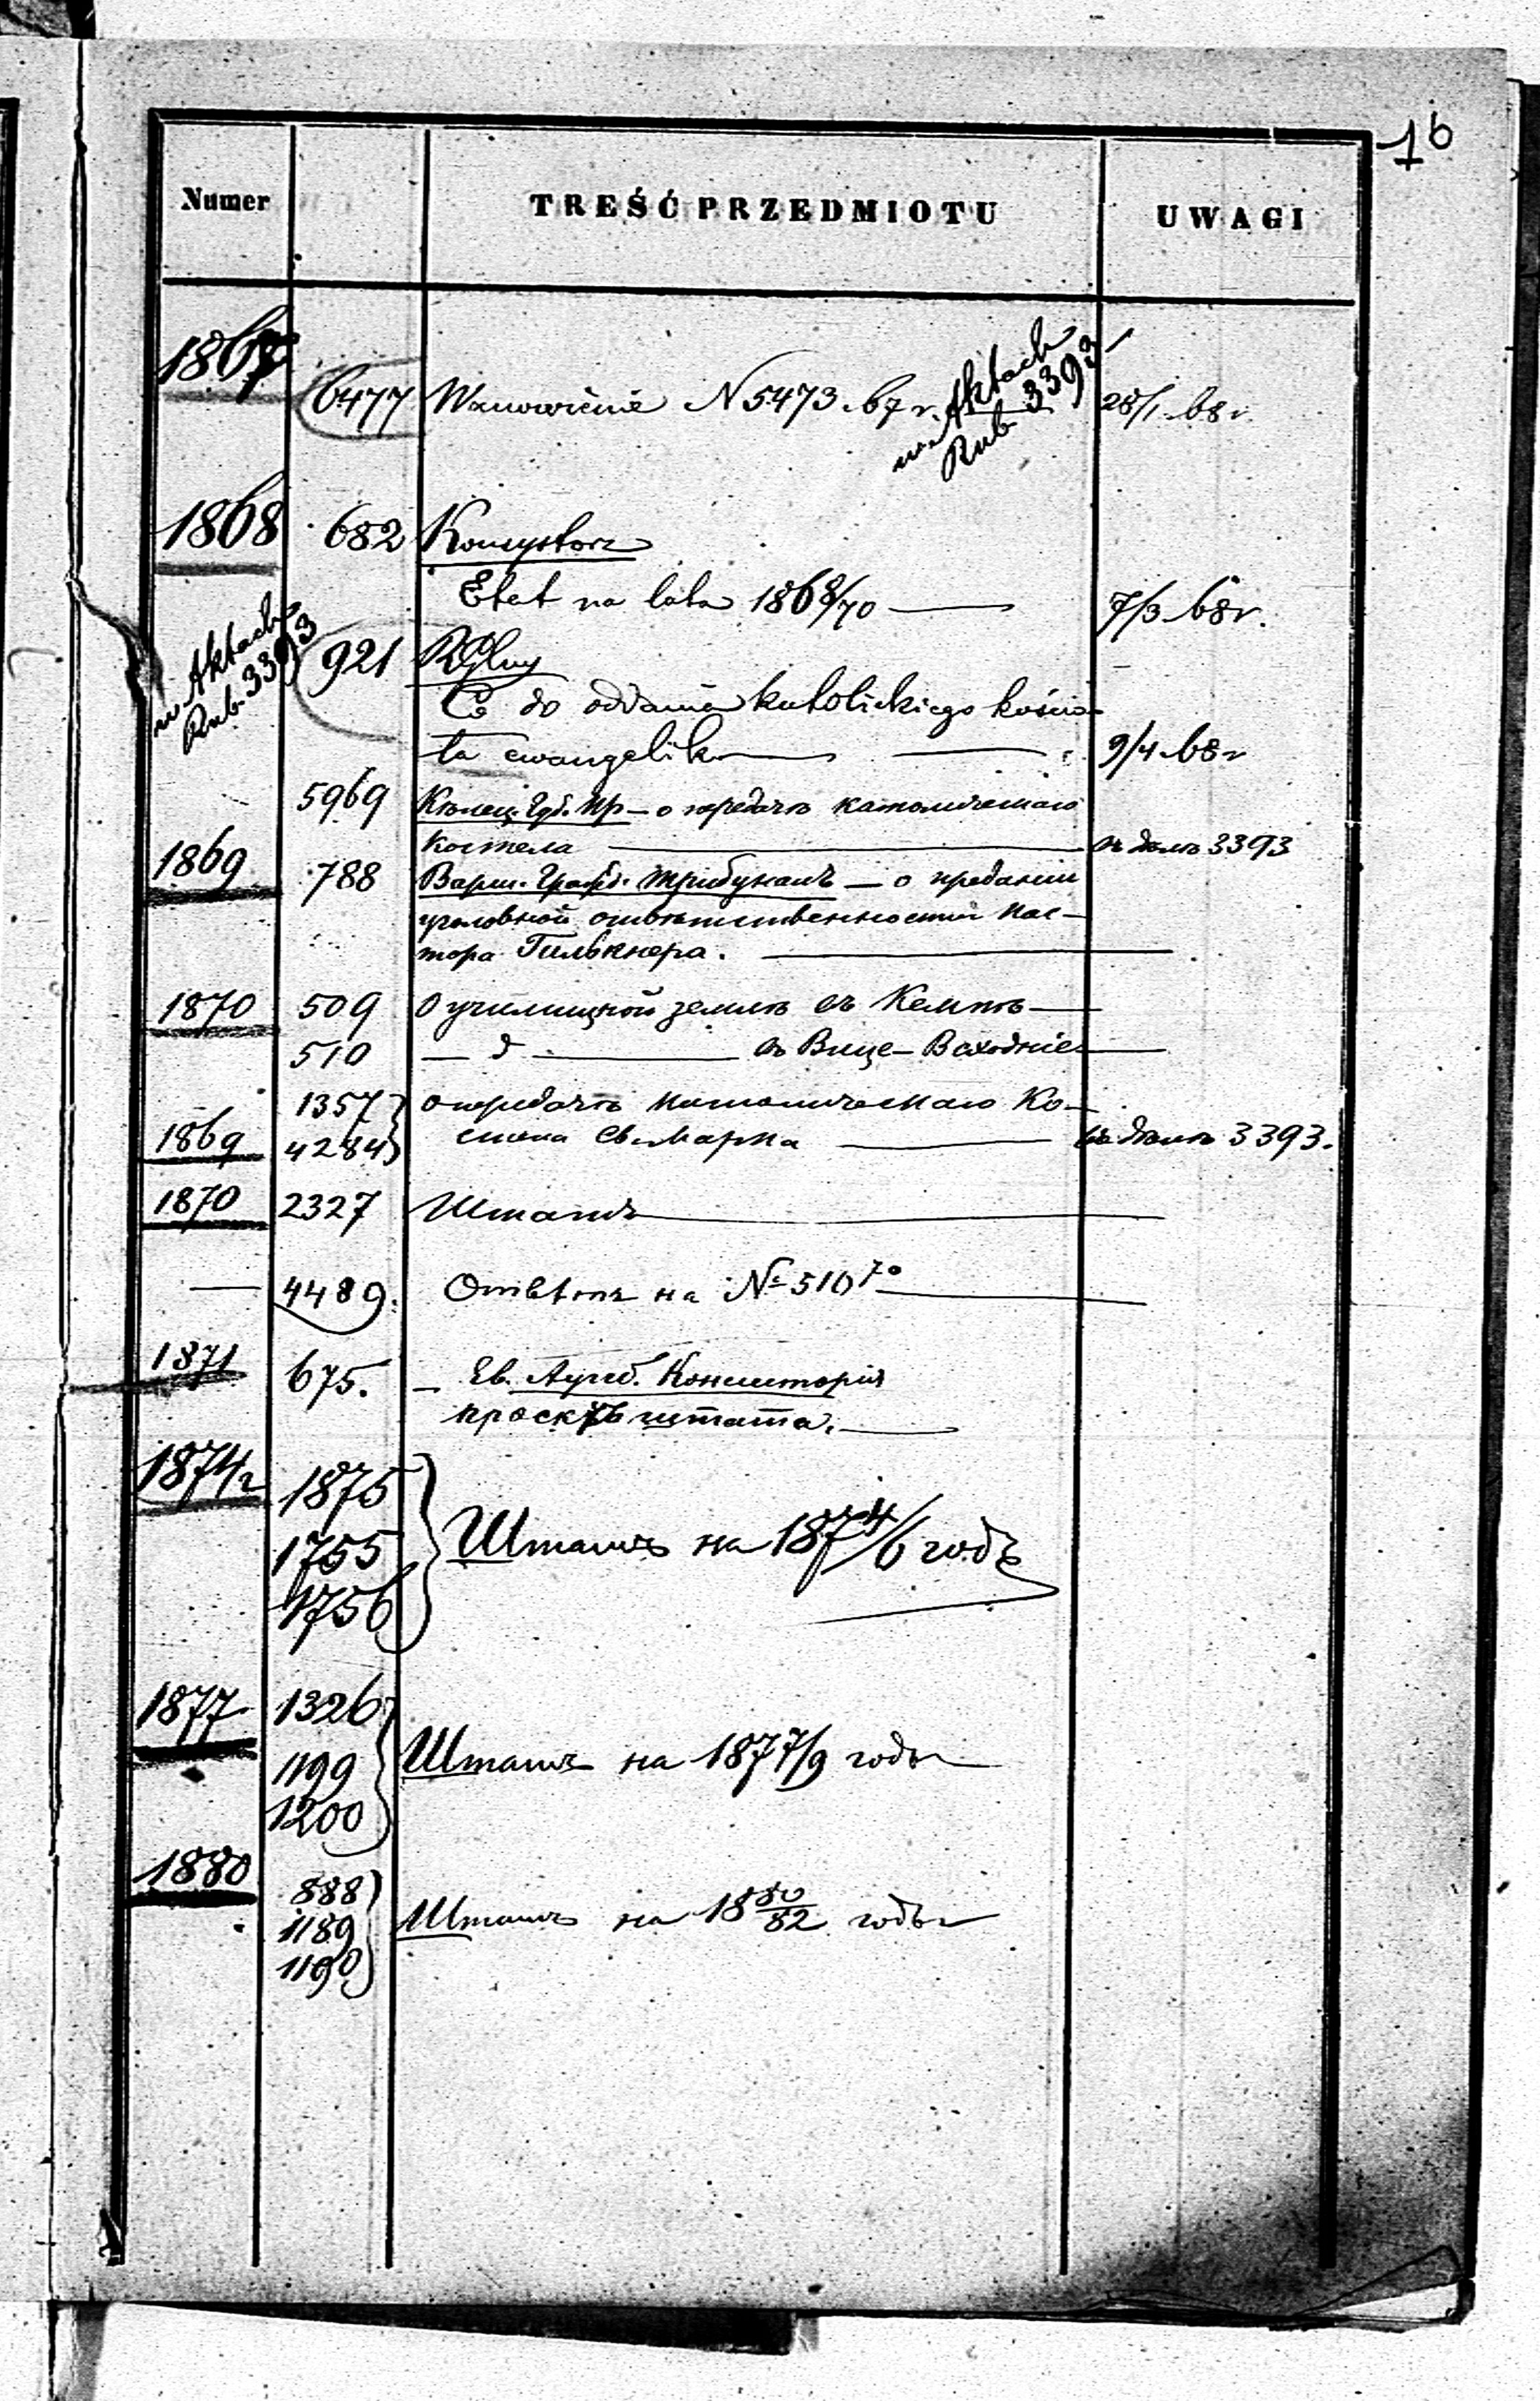 16
Numer TREŚĆ PRZEDMIOTU UWAGI
1867
w Aktach
Rub. 3393
6477 Wznowienie N 5473.67 r. 28/1 68 r.
1868 682 Konsystorz
Etat na lata 1868/70 7/3 68 r.
w Aktach
Rub. 3393
921
Co do oddania katolickiego kościo-
ła ewangelik 9/4 68 r
5969 Келец. Губ. Пр — о передачѣ католическаго
костела въ дѣлѣ 3393
1869 788 Варш. Гражд. Трибуналъ — о преданіи
уголовной отвѣтственности пас-
тора
1870 509 О училищной землѣ въ Кемпѣ
510 — д — въ
1357 о передачѣ католическаго Ко-
1869 4284 въ дѣлѣ 3393.
1870 2327 Штатъ
— 4489. Отвѣтъ на № 510 70
1871 675. — Ев. Аугсб. Консисторія
проектъ штата.
1874 г 1875
1755 Штатъ на 1874/6 годъ
1756
1877 1326
1199 Штатъ на 1877/9 годы
1200
1880 888
1189 Штатъ на 1880/82 годы
1190